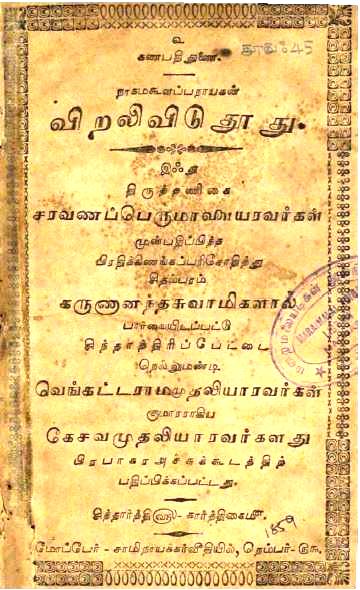 உ
கணபதி துணை.
நாகமகூளப்பநாயகன்
விறலிவிடுதூது.
இஃது
திருத்தணிகை
சரவணப்பெருமாளையரவர்கள்
முன்பதிப்பித்த
பிரதிக்கிணங்கப்பரிசோதித்து
சிதம்பரம்
கருணானந்தசுவாமிகளால்
பார்வையிடப்பட்டு
சிந்தாத்திரிப்பேட்டை
நெல்லுமண்டி
வெங்கட்டராமமுதலியாரவர்கள்
குமாரராகிய
கேசவமுதலியாரவர்களது
பிரபாகரஅச்சுக்கூடத்திற்
பதிப்பிக்கப்பட்டது.
சித்தார்த்தி௵ - கார்த்திகை௴
1859
சாமிநாயக்கர்வீதியில், நெம்பர்